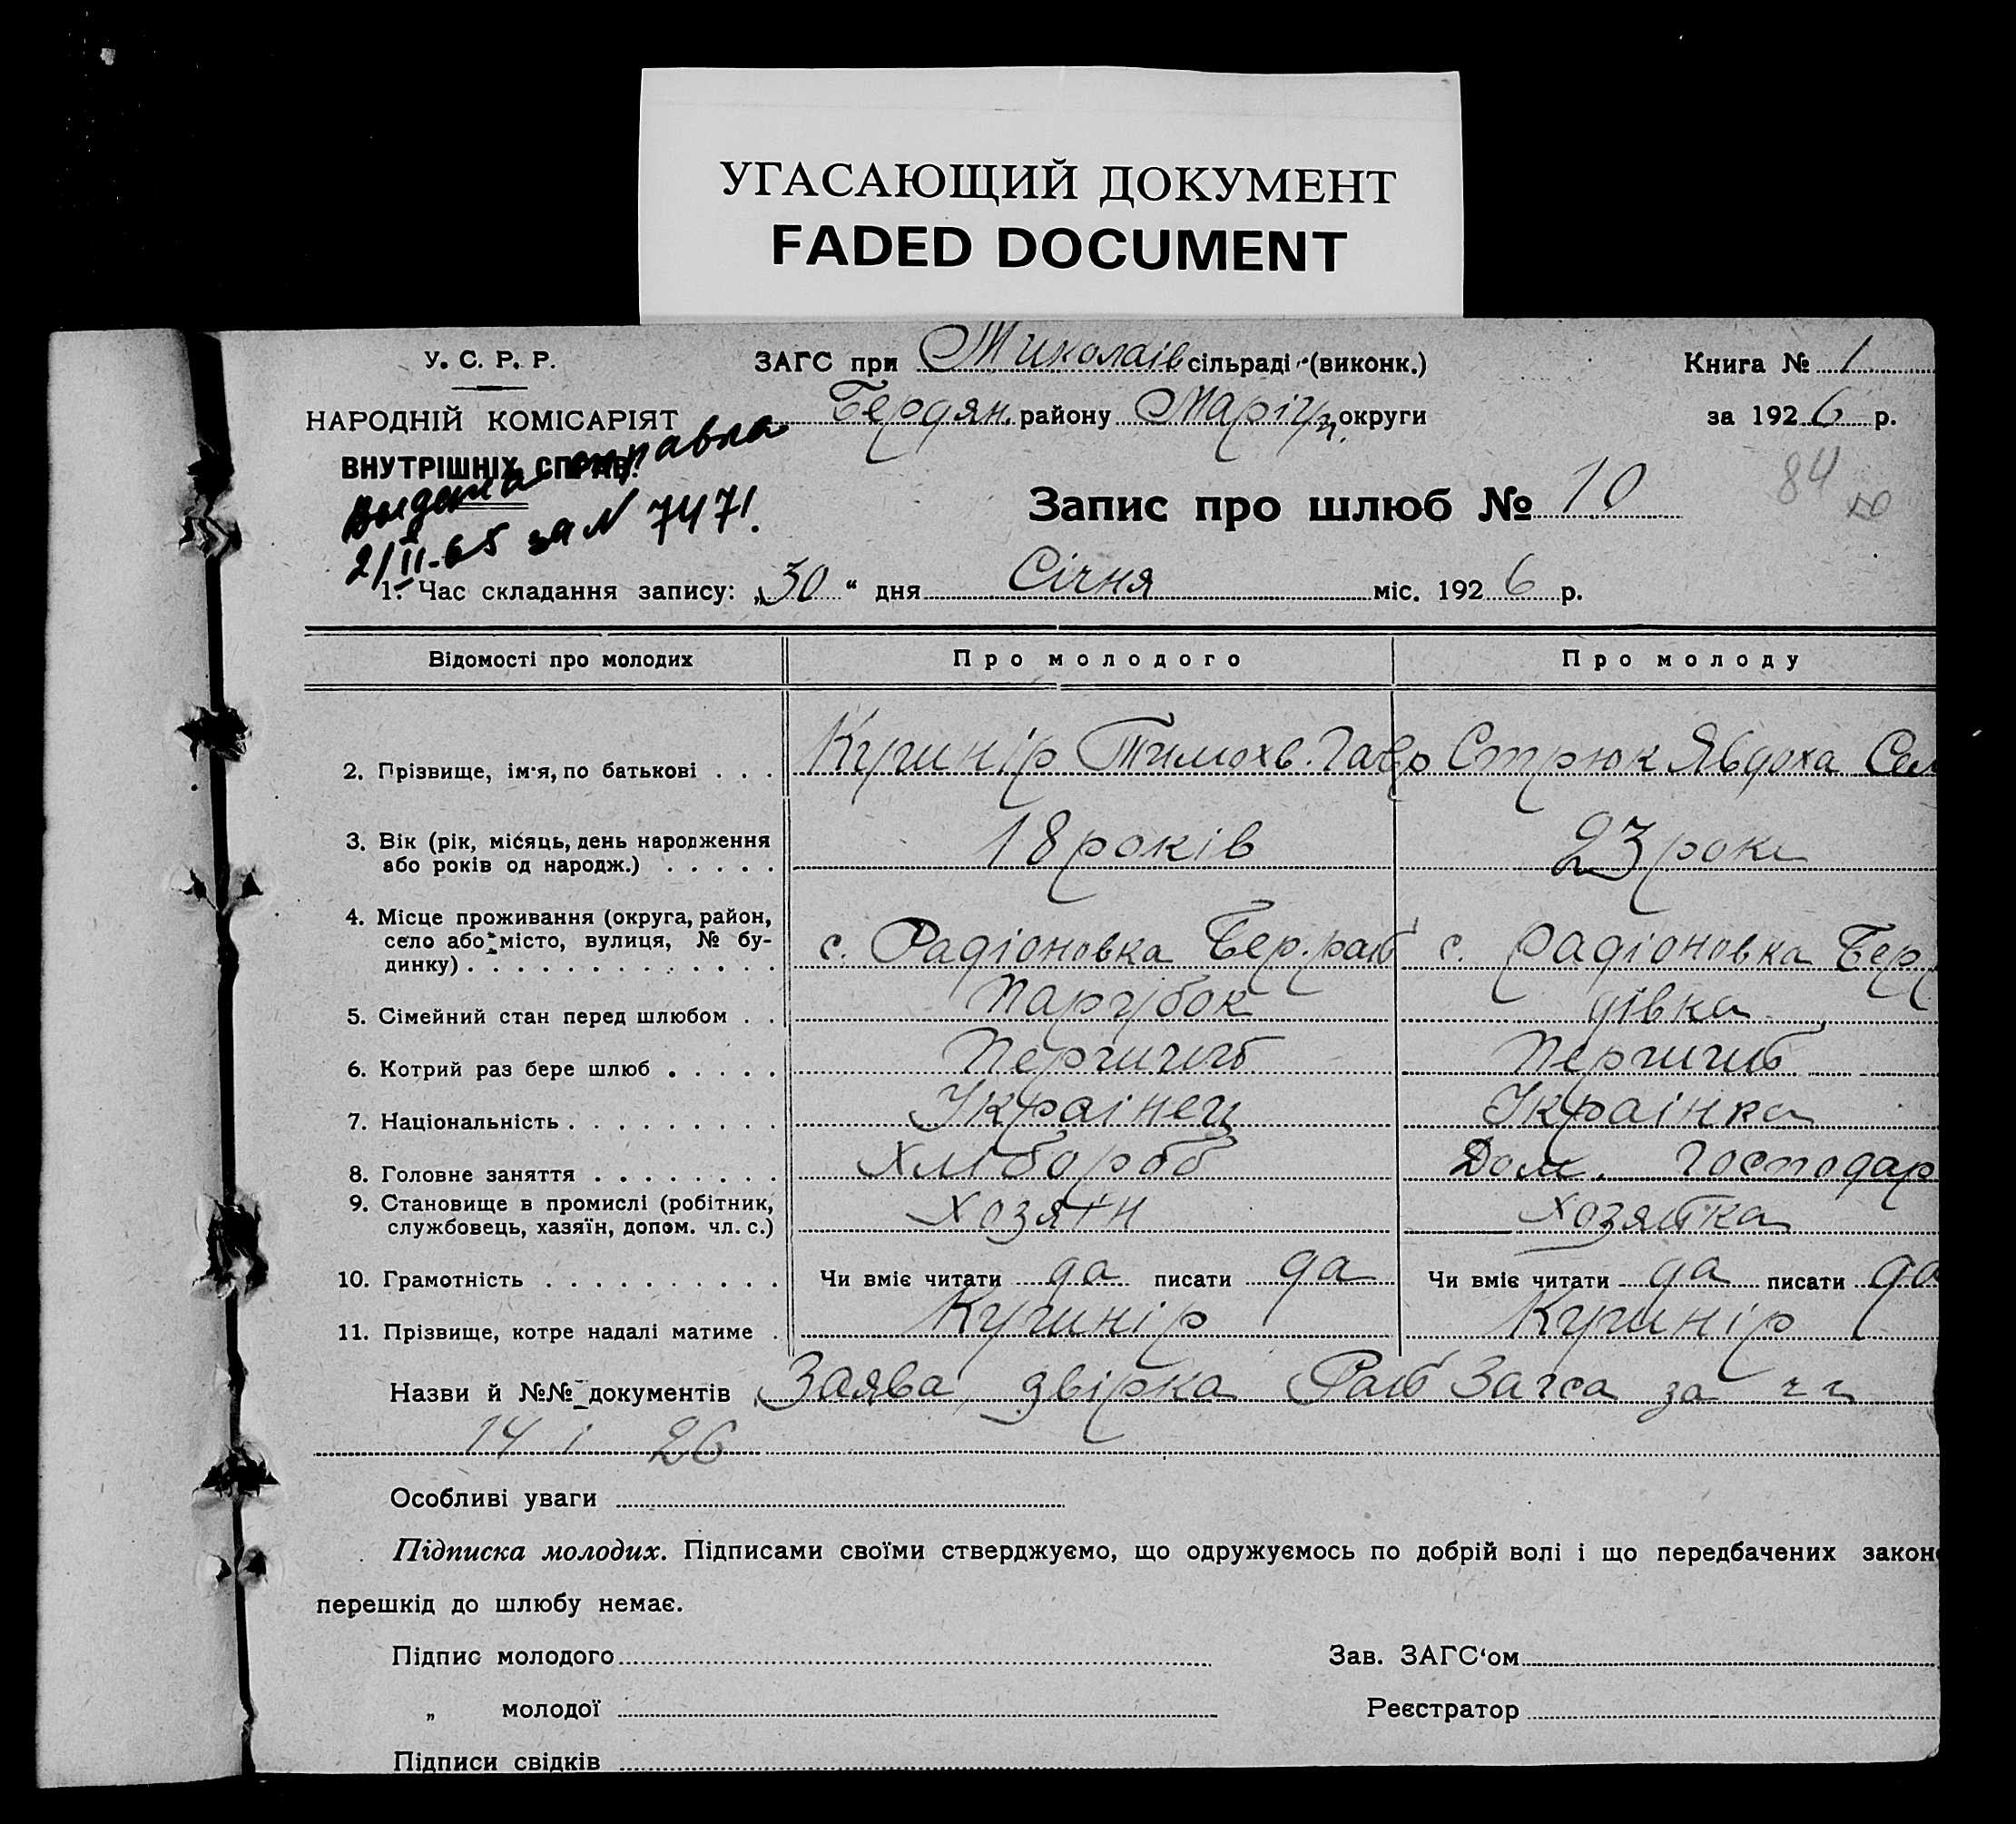 УГАСАЮЩИЙ ДОКУМЕНТ
FADED DOCUMENT
У. С. Р. Р.
НАРОДНІЙ КОМІСАРІЯТ
ВНУТРІШНІХ СПРАВ.
Выдана справка
2/II-65 за N 7471.
ЗАГС при Миколаів сільраді (виконк.)
Бердян. району Маріуп. округи
Книга № 1
за 1926 р.
84
Запис про шлюб № 10
1. Час складання запису: „30“ дня Січня міс. 1926 р.
Відомості про молодих Про молодого Про молоду
2. Прізвище, ім'я, по батькові . . . Кушнір Тимохв. Гавр Стрюк Явдоха Сем
3. Вік (рік, місяць, день народження
або років од народж.) . . . . . 18 років 23 роки
4. Місце проживання (округа, район,
село або місто, вулиця, № бу-
динку) . . . . . . . . . . . . . с. Радіоновка Бер. раів с. Радіоновка Бер
5. Сімейний стан перед шлюбом . . Парубок дівка
6. Котрий раз бере шлюб . . . . . Перший Перший
7. Національність . . . . . . . . . Украінец Украінка
8. Головне заняття . . . . . . . . Хлібороб Дом. Господар
9. Становище в промислі (робітник,
службовець, хазяїн, допом. чл. с.) хозяін хозяйка
10. Грамотність . . . . . . . . . . Чи вміє читати да писати да Чи вміє читати да писати да
11. Прізвище, котре надалі матиме . Кушнір Кушнір
Назви й №№ документів Заява, звірка Рай Загса за чч
14 і 26
Особливі уваги
Підписка молодих. Підписами своїми стверджуємо, що одружуємось по добрій волі і що передбачених закон
перешкід до шлюбу немає.
Підпис молодого Зав. ЗАГС'ом
„ молодої Реєстратор
Підписи свідків